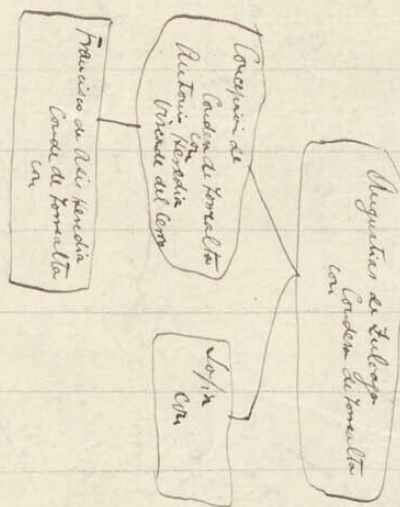 Angustias de Zuloaga
Condesa de Torrealta
con
Concepción de
Condesa de Torrealta
con
Antonio Heredia
Vizconde del Cerro
Sofía
con
Francisco de Asis Heredia
Conde de Torrealta
con